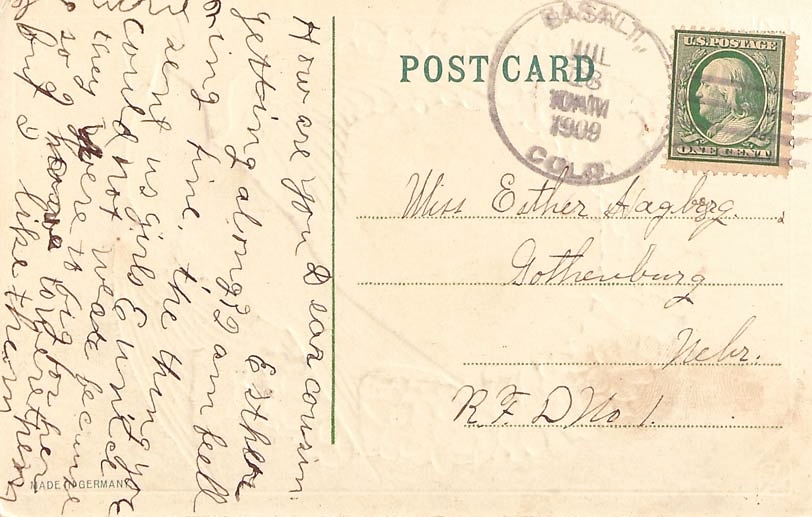 POST CARD
BASALT,
JUL
10 AM
1909
COLO.
U.S. POSTAGE
ONE CENT
Miss Esther Hagberg.
Gothenburg
Nebr.
R F D No 1.
How are you Dear cousin
Esther
getting along? I am feell
ing fine. the thing you
sent us girls E unice
could not wear becuse
they were to big for her
so I
I like them
MADE IN GERMANY